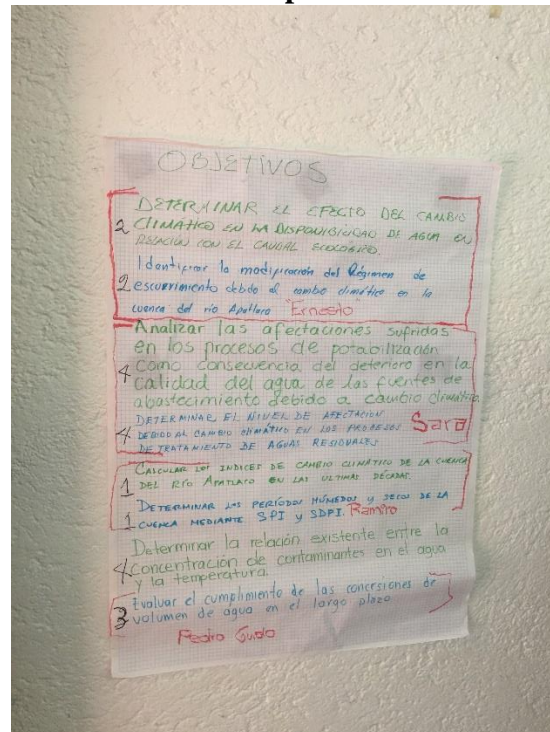 OBJETIVOS
DETERMINAR EL EFECTO DEL CAMBIO
2 CLIMÁTICO EN LA DISPONIBILIDAD DE AGUA EN
RELACIÓN CON EL CAUDAL ECOLÓGICO.
Identificar la modificación del Régimen de
2 escurrimiento debido al cambio climático en la
cuenca del río Apatlaco "Ernesto"
Analizar las afectaciones sufridas
en los procesos de potabilización
4 como consecuencia del deterioro en la
calidad del agua de las fuentes de
abastecimiento debido a cambio climático.
DETERMINAR EL NIVEL DE AFECTACIÓN
4 DEBIDO AL CAMBIO CLIMÁTICO EN LOS PROCESOS Sara
DE TRATAMIENTO DE AGUAS RESIDUALES
1 CALCULAR LOS INDICES DE CAMBIO CLIMÁTICO DE LA CUENCA
DEL RÍO APATLACO EN LAS ULTIMAS DÉCADAS.
DETERMINAR LOS PERÍODOS HÚMEDOS Y SECOS DE LA
1 CUENCA MEDIANTE SPI Y SDPI. Ramiro
Determinar la relación existente entre la
4 concentración de contaminantes en el agua
y la temperatura.
Evaluar el cumplimiento de las concesiones de
3 volumen de agua en el largo plazo
Pedro Guido